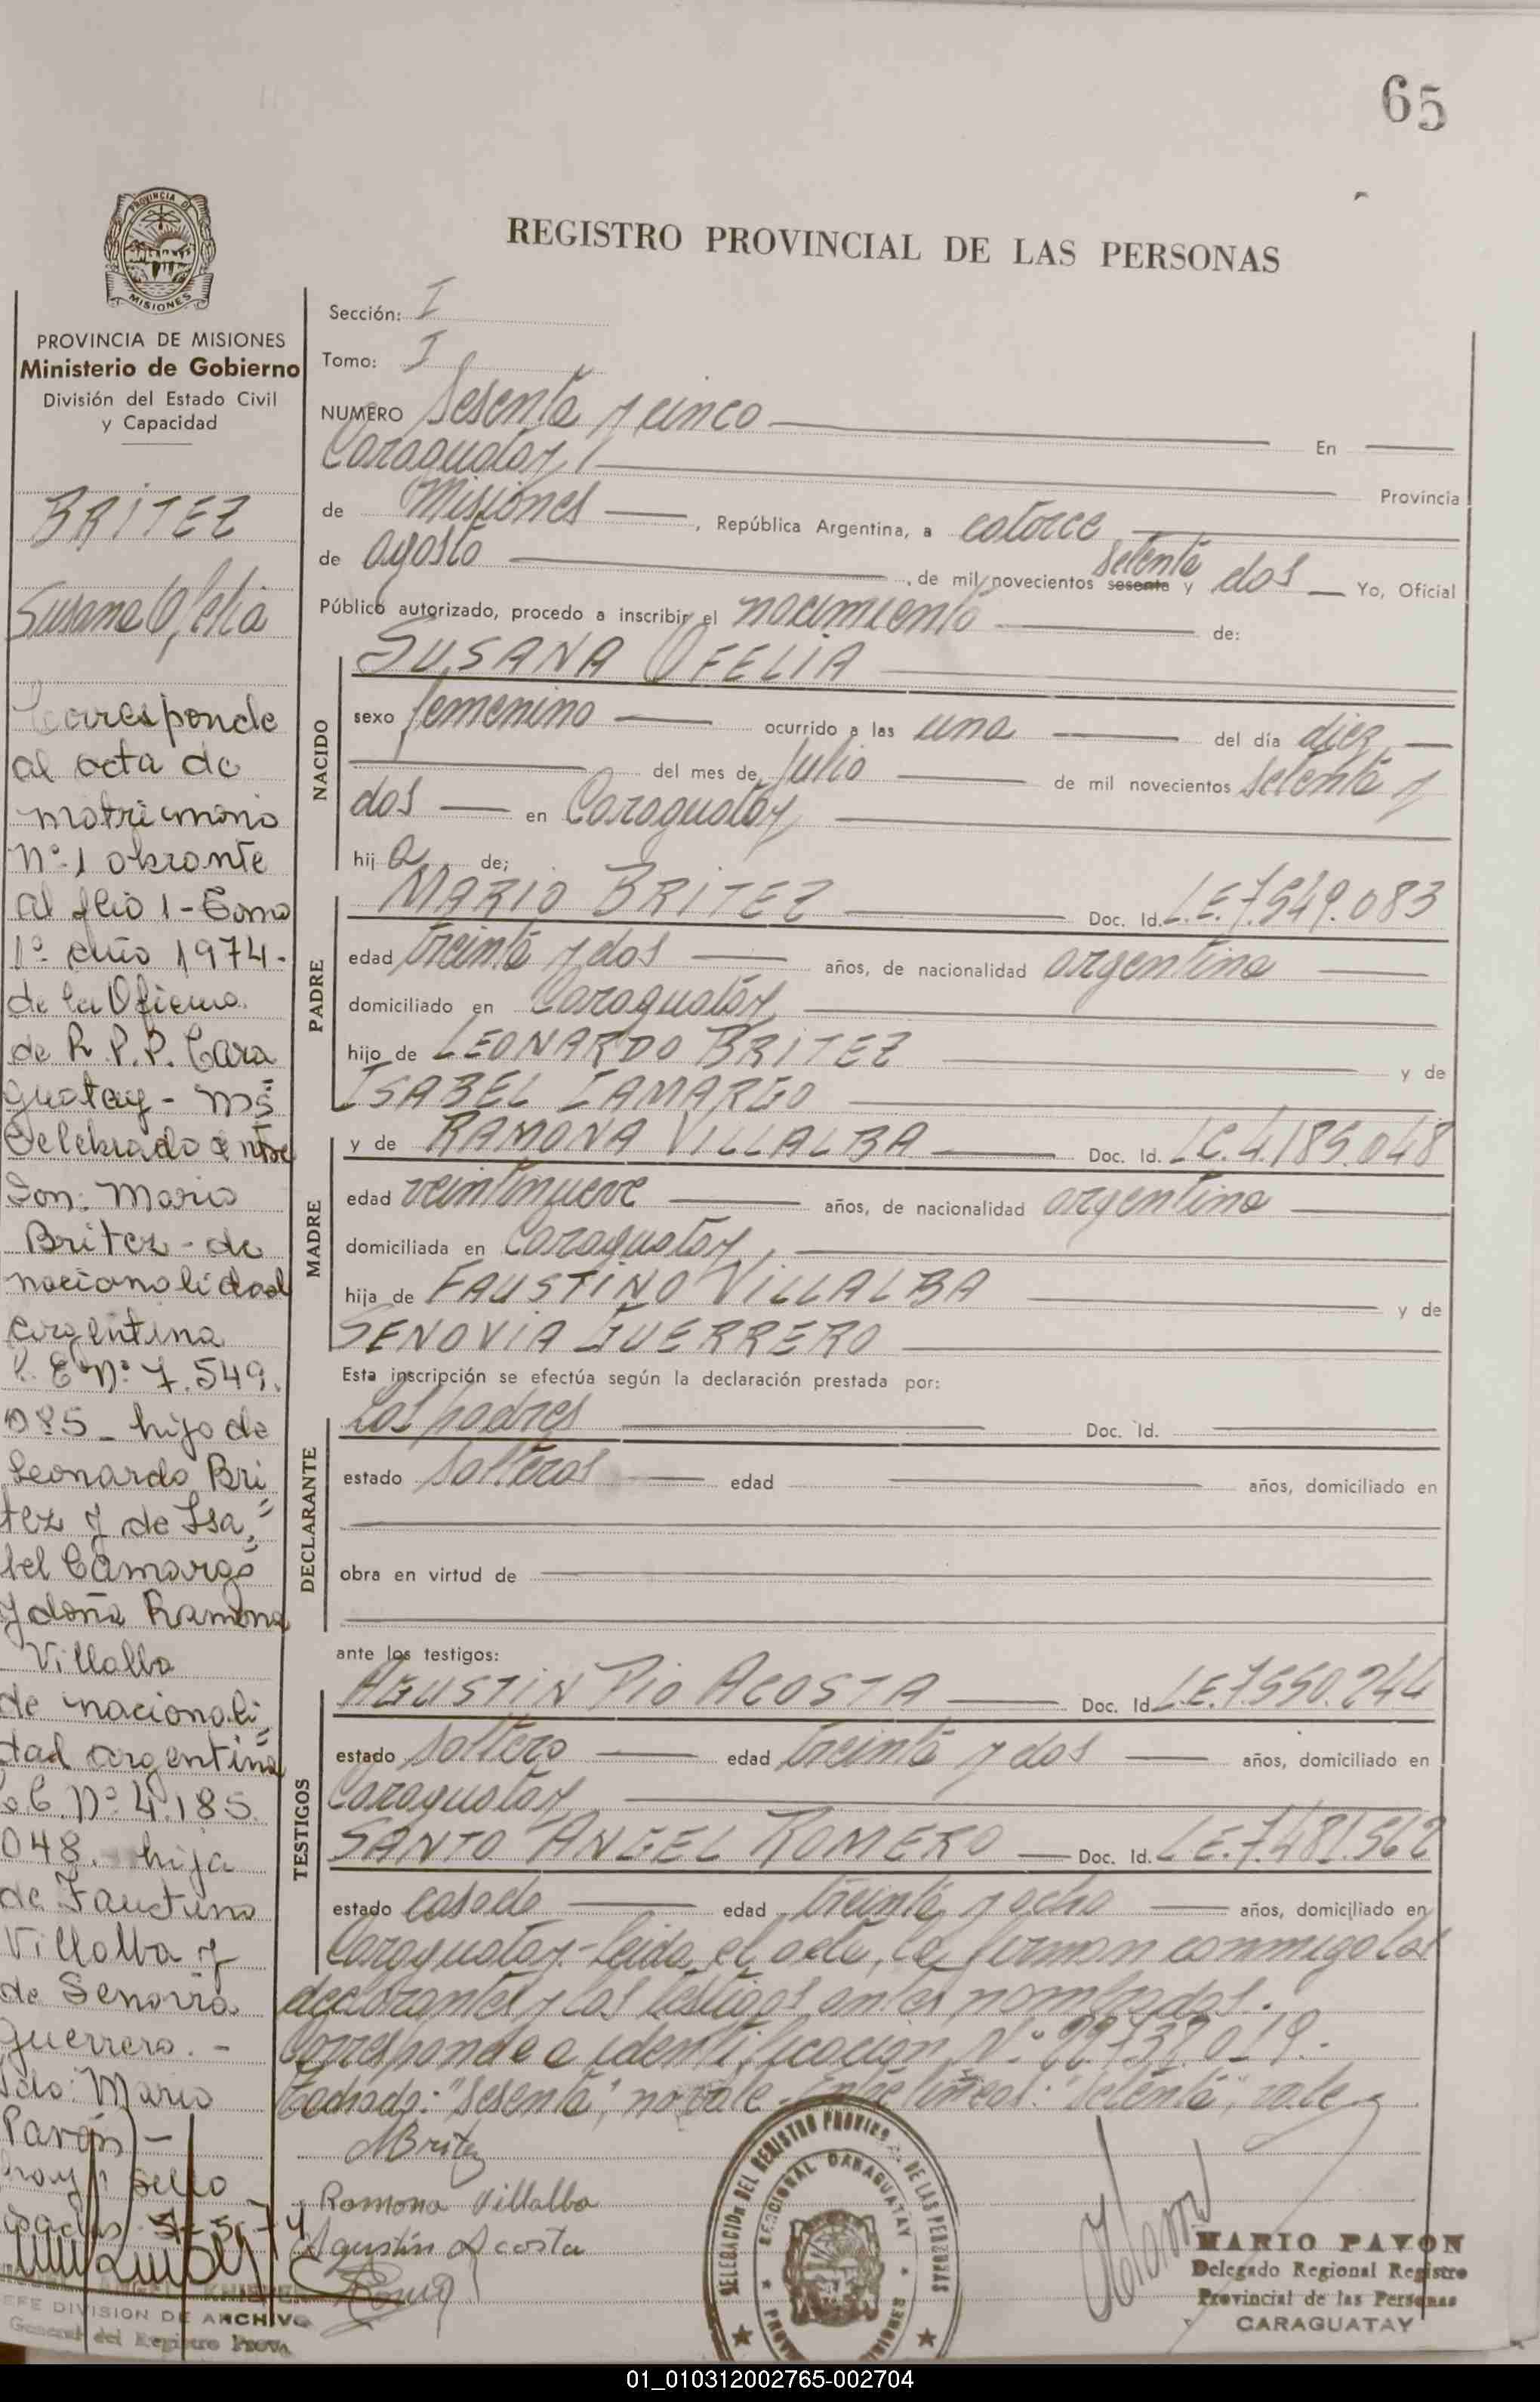 65
PROVINCIA DE
MISIONES
PROVINCIA DE MISIONES
Ministerio de Gobierno
División del Estado Civil
y Capacidad
BRITEZ
Susana Ofelia
Corresponde
al acta de
matrimonio
Nº 1 obrante
al folio 1 - Tomo
1º año 1974 -
de la Oficina
de R.P.P. Cara
guatay - Ms
celebrado entre
Don: Mario
Britez - de
nacionalidad
argentina
L.E Nº 7.549.
085 - hijo de
Leonardo Bri
tez y de Isa
bel Camargo
y doña Ramona
Villalba
de nacionali
dad argentina
L.C. Nº 4.185.
048. hija
de Faustino
Villalba y
de Senovia
Guerrero. -
Fdo: Mario
Pavón -
hay sello
JEFE DIVISION DE ARCHIVO
General del Registro Prov.
REGISTRO PROVINCIAL DE LAS PERSONAS
Sección: I
Tomo: I
NUMERO Sesenta y cinco En
Caraguatay
Provincia
de Misiones, República Argentina, a catorce
de agosto, de mil novecientos sesenta y setenta dos Yo, Oficial
Público autorizado, procedo a inscribir el nacimiento de:
NACIDO
SUSANA OFELIA
sexo femenino ocurrido a las una del día diez
del mes de Julio de mil novecientos setenta y
dos en Caraguatay
hij a de;
PADRE
MARIO BRITEZ Doc. Id. L.E.7.549.083
edad treinta y dos años, de nacionalidad argentina
domiciliado en Caraguatay
hijo de LEONARDO BRITEZ y de
ISABEL CAMARGO
MADRE
y de RAMONA VILLALBA Doc. Id. LC.4.185.048
edad veintinueve años, de nacionalidad argentina
domiciliada en Caraguatay,
hija de FAUSTINO VILLALBA y de
SENOVIA GUERRERO
Esta inscripción se efectúa según la declaración prestada por:
DECLARANTE
Los padres Doc. Id.
estado solteros edad años, domiciliado en
obra en virtud de
ante los testigos:
TESTIGOS
AGUSTIN PIO ACOSTA Doc. Id. L.E.7.550.244
estado soltero edad treinta y dos años, domiciliado en
Caraguatay
SANTO ANGEL ROMERO Doc. Id. L.E.7.481.562
estado casado edad treinta y ocho años, domiciliado en
Caraguatay - Leida el acta, la firman conmigo los
declarantes y los testigos antes nombrados.
Corresponde a identificación Nº 22.737.019.-
Tachado: "sesenta", no vale - Entre líneas: "setenta", vale
MBritez
Ramona Villalba
Agustín Acosta
DELEGACION DEL REGISTRO PROVINCIAL DE LAS PERSONAS
SECCIONAL CARAGUATAY
MARIO PAVON
Delegado Regional Registro
Provincial de las Personas
CARAGUATAY
01_010312002765-002704